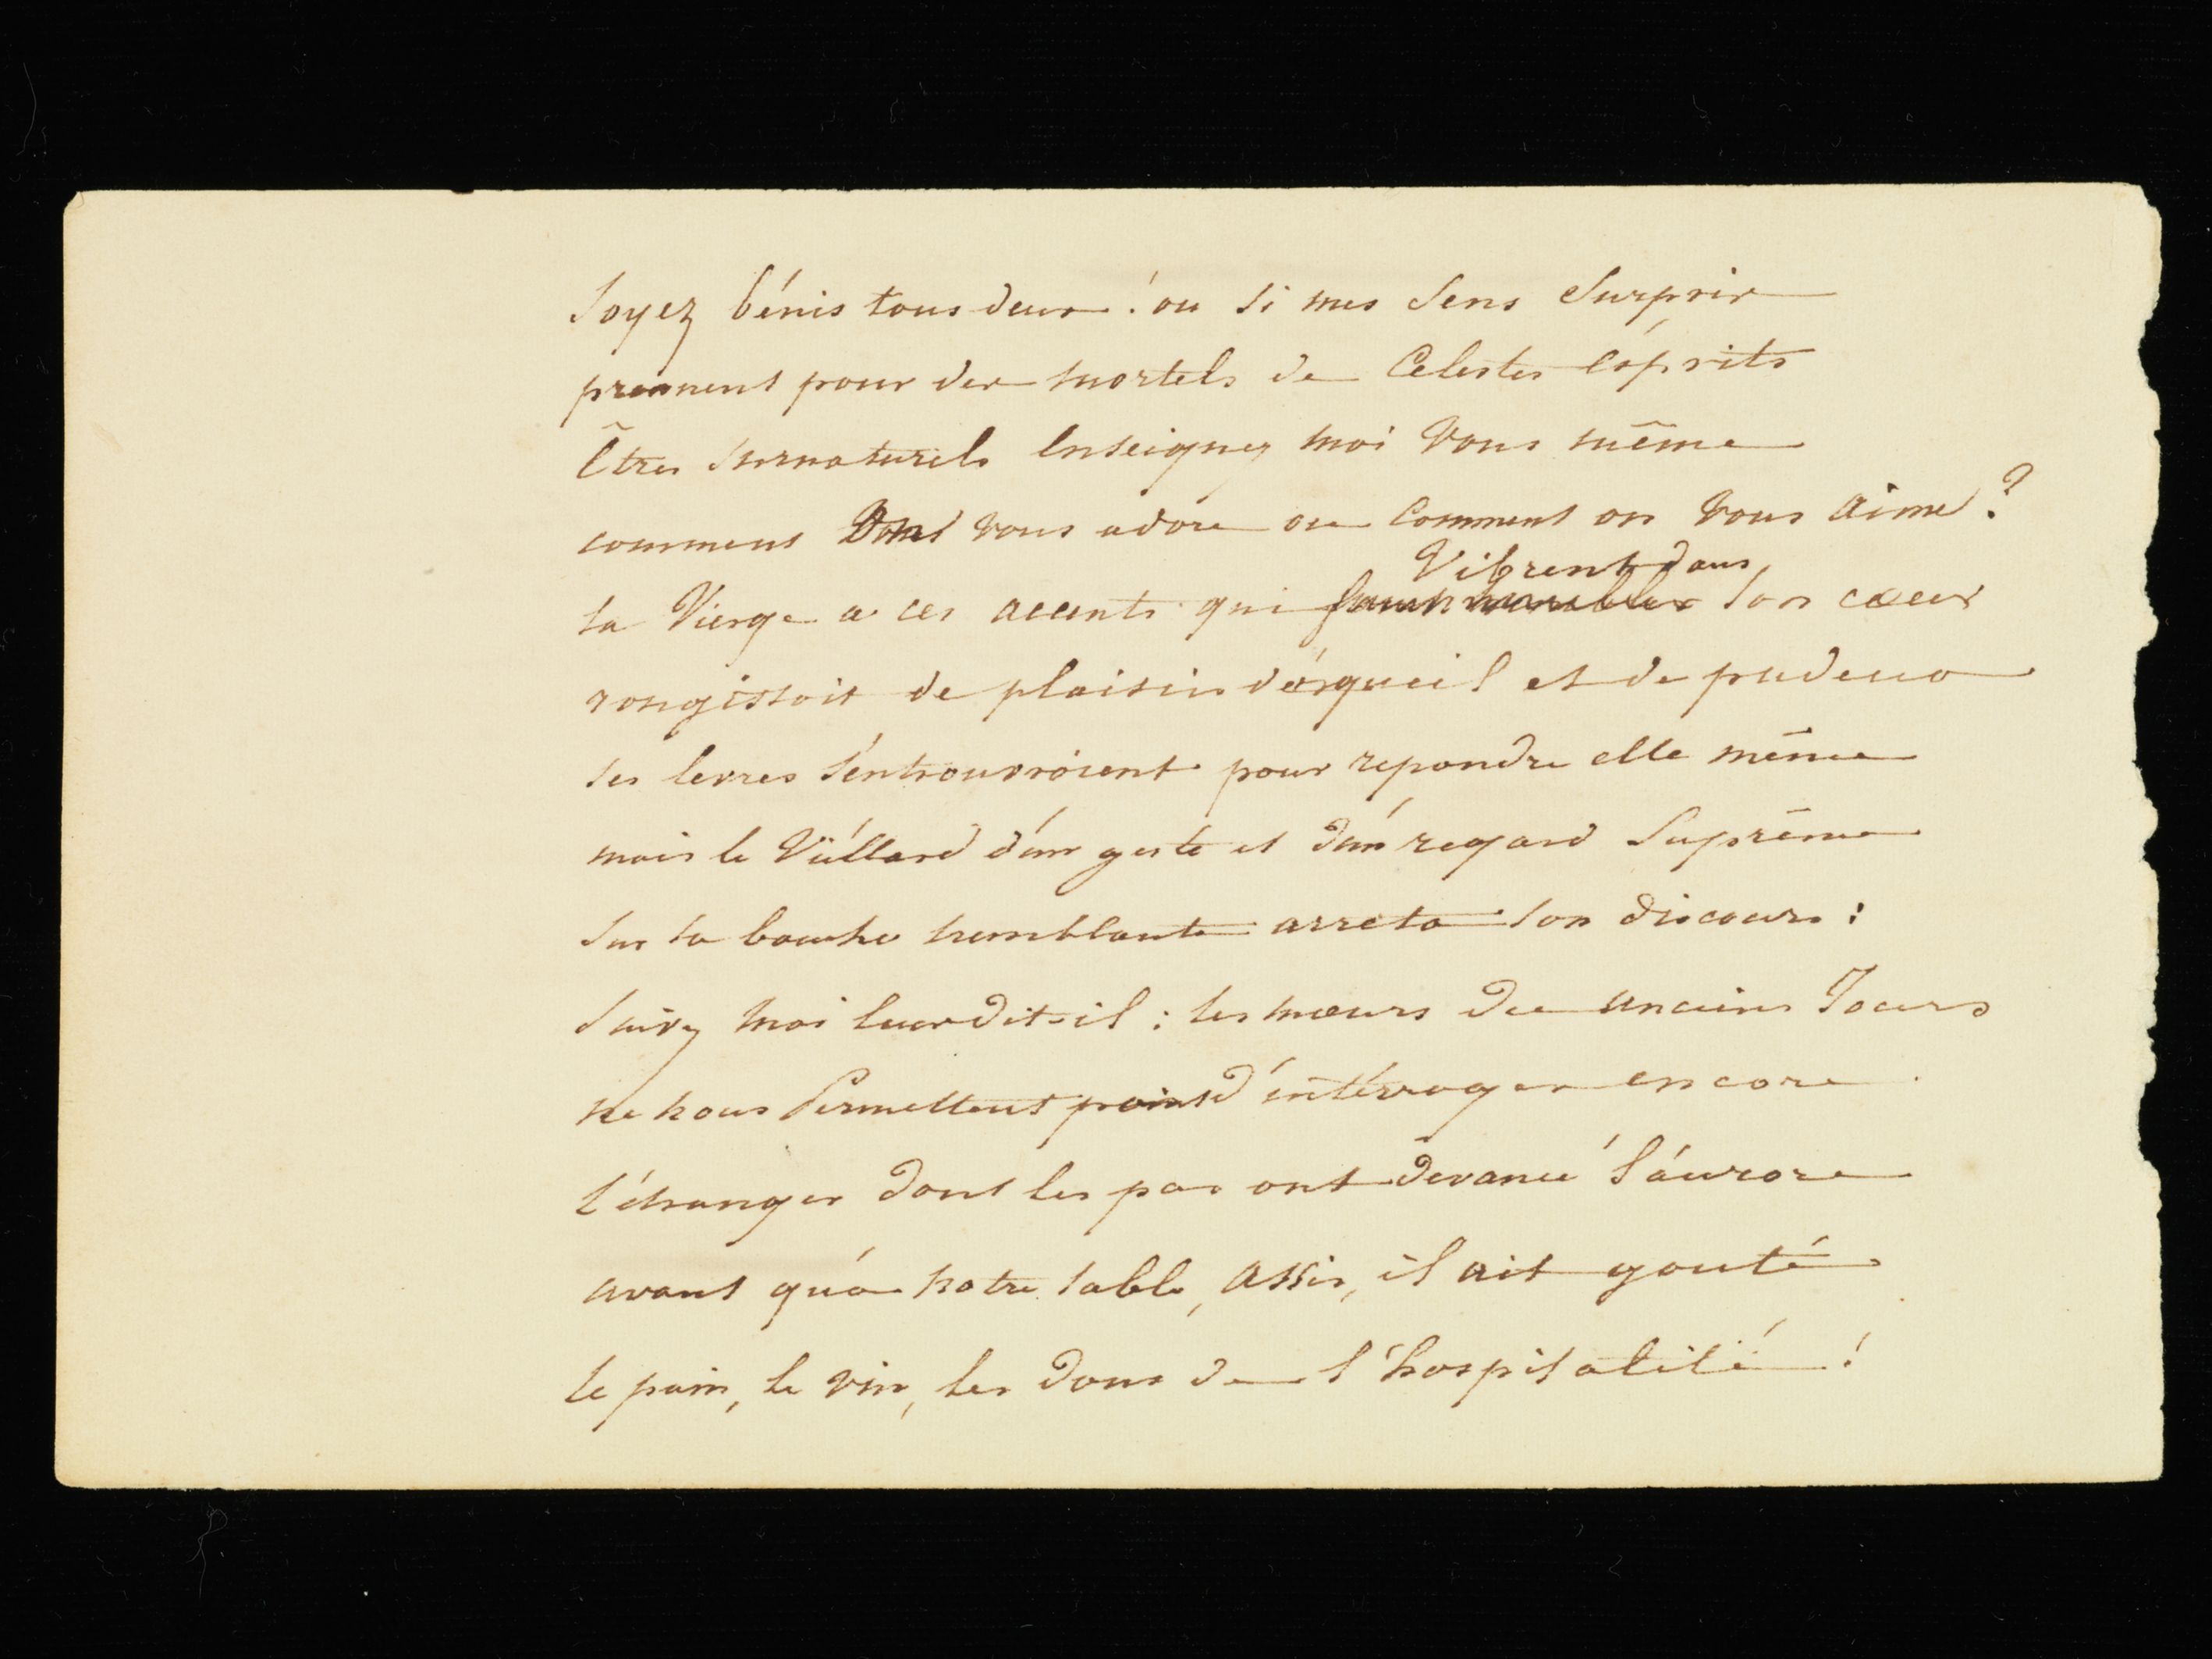 Soyez bénis tous deux ! ou si mes sens surpris
prennent pour des mortels de Celestes ésprits
Êtres surnaturels Enseignez moi Vous même
comment vous adore ou Comment on Vous aime ?
Vibrent dans
la Vierge a ces accents qui son cœur
rougissoit de plaisir d'orgueil et de pudeur
ses levres s'entrouvroient pour repondre elle même
mais le Viéllard d'un geste et d'un regard Suprême
Sur sa bouche tremblante arreta son discours :
Suivez moi leur dit-il : les mœurs des anciens Jours
ne nous Permettent point d'intérroger encore
l'étranger dont les pas ont devancé l'aurore
avant qu'a notre table, assis, il ait gouté
le pain, le vin, les dons de l'hospitalité !